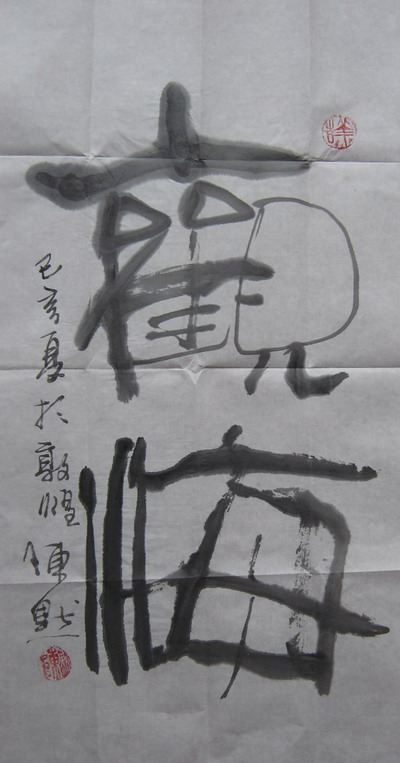 觀海
己亥夏於敦煌陳默